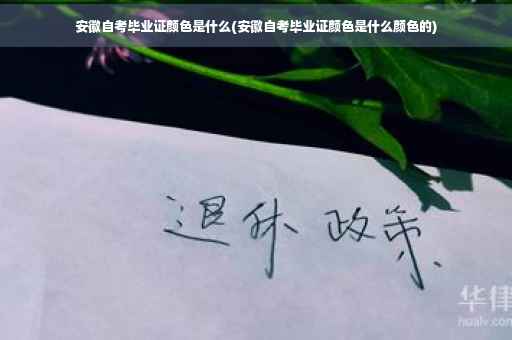 安徽自考毕业证颜色是什么(安徽自考毕业证颜色是什么颜色的)
退休 政策
华律
hualv.com